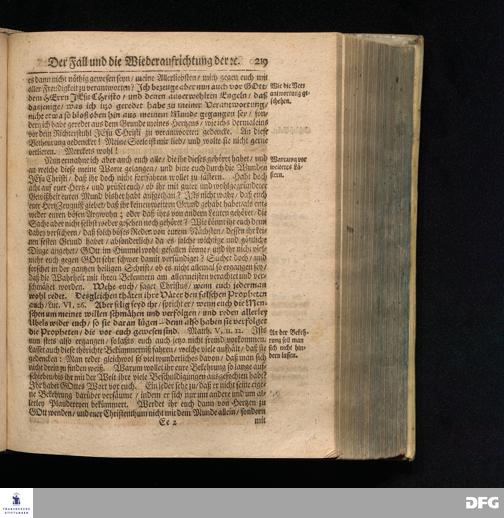 Der Fall und die Wiederaufrichtung der ꝛc. 219
es dann nicht nöthig gewesen seyn / meine Allerliebsten / mich gegen euch mit
aller Freudigkeit zu verantworten? Ich bezeuge aber nun auch vor GOtt /
dem HErrn JEsu Christo / und denen auserwehlten Engeln / daß
dasjenige / was ich itzo geredet habe zu meiner Verantwortung /
nicht etwa so bloß oben hin aus meinem Munde gegangen sey / son-
dern ich habe geredet aus dem Grunde meines Hertzens / wie ichs dermaleins
vor dem Richterstuhl JEsu Christi zu verantworten gedencke. An diese
Betheurung gedencket! Meine Seele ist mir lieb / und wolte sie nicht gerne
verlieren. Merckets wohl!
Nun ermahne ich aber auch euch alle / die ihr dieses gehöret habet / und
an welche diese meine Worte gelangen / und bitte euch durch die Wunden
JEsu Christi / daß ihr doch nicht fortfahren wollet zu lästern. Habt doch
acht auf euer Hertz / und prüfet euch / ob ihr mit guter und wohlgegründeter
Gewißheit euren Mund bisher habt aufgethan? Ists nicht wahr / daß euch
euer Hertz Zeugniß giebet / daß ihr keinen weitern Grund gehabt habet / als ent-
weder euren bösen Argwohn; oder daß ihrs von andern Leuten gehöret / die
Sache aber nicht selbst weder gesehen noch gehöret? Wie könnt ihr euch denn
dabey versichern / daß solch böses Reden von eurem Nächsten / dessen ihr kei-
nen festen Grund habet / absonderlich / da es solche wichtige und göttliche
Dinge angehet / GOtt im Himmel wohl gefallen könne / und ihr nicht viel-
mehr euch gegen GOtt sehr schwer damit versündiget? Suchet doch / und
forschet in der gantzen heiligen Schrift / ob es nicht allemal so ergangen sey /
daß die Wahrheit mit ihren Bekennern am allermeisten verachtet und ver-
schmähet worden. Wehe euch / saget Christus / wenn euch jederman
wohl redet. Desgleichen thäten ihre Väter den falschen Propheten
auch / Luc. VI, 26. Aber selig seyd ihr / spricht er / wenn euch die Men-
schen um meinet willen schmähen und verfolgen / und reden allerley
Übels wider euch / so sie daran lügen – denn also haben sie verfolget
die Propheten / die vor euch gewesen sind. Matth. V, 11. 12. Ists
nun stets also ergangen / so lasts euch auch jetzo nicht fremd vorkommen.
Lasset auch diese thörichte Bekümmerniß fahren / welche viele aufhält / daß sie
gedencken: Man redet gleichwol so viel wunderliches davon / daß man sich
nicht drein zu finden weiß. Warum wollet ihr eure Bekehrung so lange auf-
schieben / bis ihr mit der Welt ihre viele Beschuldigungen ausgefochten habet?
Ihr habet GOttes Wort vor euch. Ein jeder sehe zu / daß er nicht seine eige-
ne Bekehrung darüber versäume / indem er sich nur um andere und um al-
lerley Plaudereyen bekümmert. Werdet ihr euch dann von Hertzen zu
GOtt wenden / und euer Christenthum nicht mit dem Munde allein / sondern
Ee 2 mit
Wie die Ver-
antwortung ge-
schehen.
Warnung vor
weiterem Lä-
stern.
An der Bekeh-
rung soll man
sich nicht hin-
dern lassen.
FRANCKESCHE
STIFTUNGEN
DFG